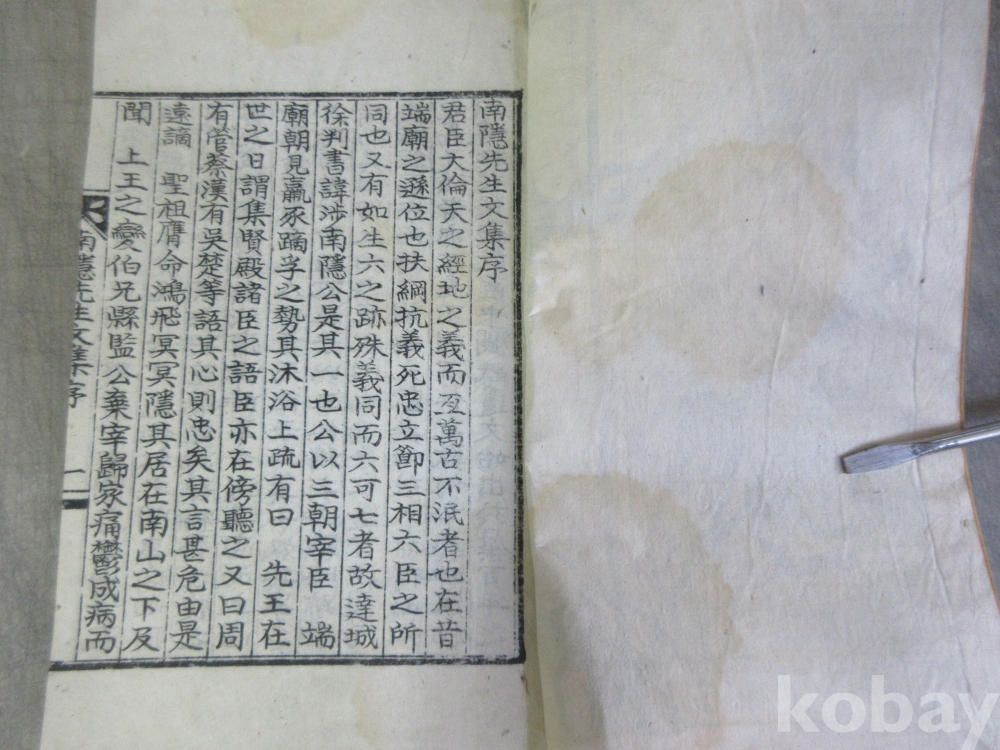 南隱先生文集序
君臣大倫天之經地之義而亙萬古不泯者也在昔
端廟之遜位也扶綱抗義死忠立節三相六臣之所
同也又有如生六之跡殊義同而六可七者故達城
徐判書諱涉南隱公是其一也公以三朝宰臣 端
廟朝見羸豕蹢孚之勢其沐浴上疏有曰 先王在
世之日謂集賢殿諸臣之語臣亦在傍聽之又曰周
有管蔡漢有吳楚等語其心則忠矣其言甚危由是
遠謫 聖祖膺命鴻飛冥冥隱其居在南山之下及
聞 上王之變伯兄縣監公棄宰歸家痛鬱成病而
南隱先生文集序 一
kobay